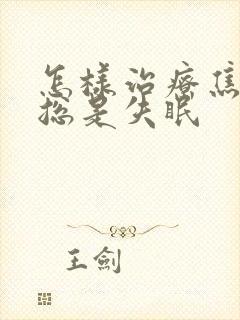 怎樣治療焦
總是失眠
王劍